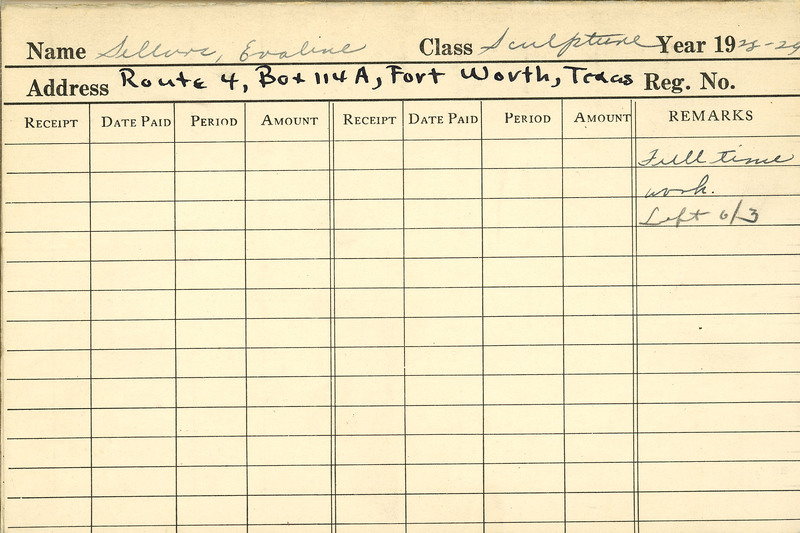 Name Sellors, Evaline Class Sculpture Year 1928-29
Address Route 4, Box 114A, Fort Worth, Texas Reg. No.
RECEIPT DATE PAID PERIOD AMOUNT RECEIPT DATE PAID PERIOD AMOUNT REMARKS
Full time
work.
Left 6/3